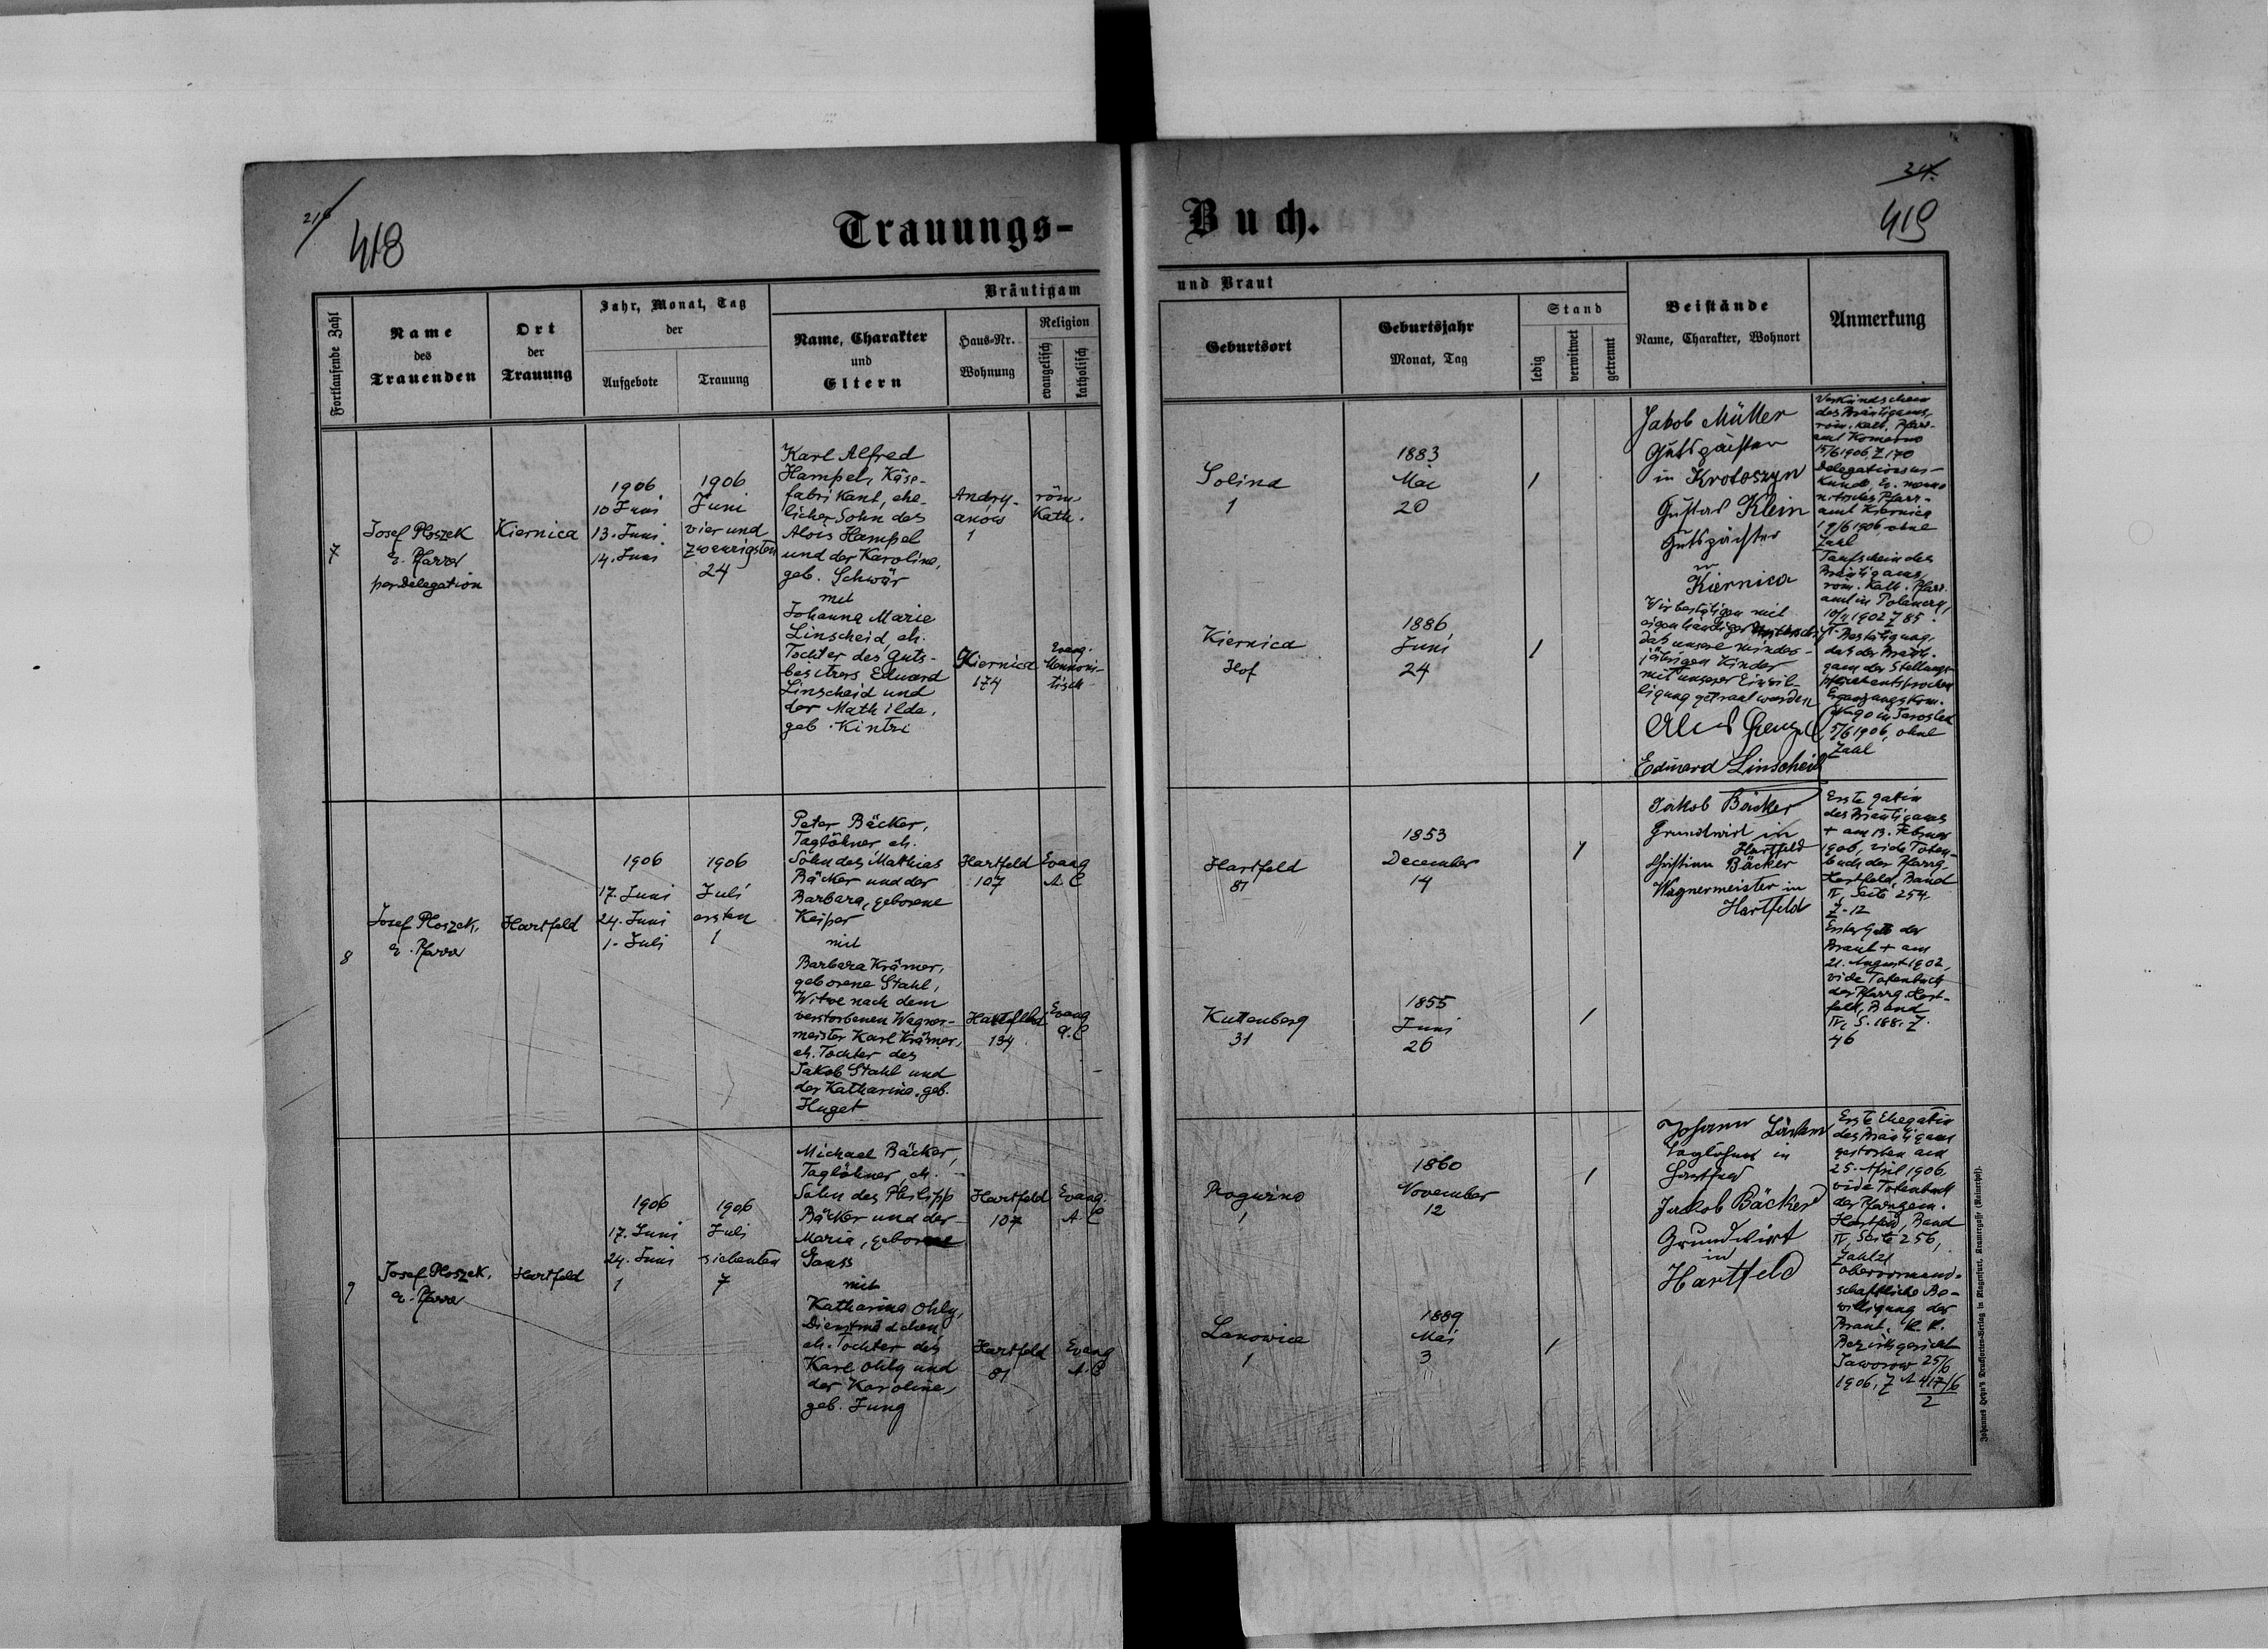 418
Trauungs-
Fortlaufende Zahl
Name
des
Trauenden
Ort
der
Trauung
Jahr, Monat, Tag
der
Aufgebote
Trauung
Bräutigam
Name, Charakter
und
Eltern
Haus-Nr.
Wohnung
Religion
evangelisch
katholisch
7
Josef Ploszek
e. Pfarrer
per Delegation
Kiernica
1906
10 Juni
13. Juni
14. Juni
1906
Juni
vier und
zwanzigsten
24
Karl Alfred
Hampel, Käse-
fabrikant, ehe-
licher Sohn des
Alois Hampel
und der Karoline,
geb. Schwär
mit
Johanna Marie
Linscheid, eh.
Tochter des Guts-
besitzers Eduard
Linscheid und
der Mathilde,
geb. Kintzi
Andry-
anów
1
röm.
Kath.
Kiernica
174
Evang.
Mennoni-
tisch
8
Josef Ploszek,
e. Pfarrer
Hartfeld
1906
17. Juni
24. Juni
1. Juli
1906
Juli
ersten
1
Peter Bäcker,
Taglöhner, eh.
Sohn des Mathias
Bäcker und der
Barbara, geborene
Keiper
mit
Barbara Krämer,
geborene Stahl,
Witwe nach dem
verstorbenen Wagner-
meister Karl Krämer,
eh. Tochter des
Jakob Stahl und
der Katharina, geb.
Huget
Hartfeld
107
Evang
A C
Hartfeld
134
Evang
A. C
9
Josef Ploszek,
e. Pfarrer
Hartfeld
1906
17. Juni
24. Juni
1
1906
Juli
siebenten
7
Michael Bäcker,
Taglöhner, eh.
Sohn des Philipp
Bäcker und der
Maria, geborene
Gauss
mit
Katharina Ohly,
Dienstmädchen
eh. Tochter des
Karl Ohly und
der Karoline,
geb. Jung
Hartfeld
107
Evang.
A. C
Hartfeld
81
Evang
A. C
Buch.
34.
419
und Braut
Geburtsort
Geburtsjahr
Monat, Tag
Stand
ledig
verwitwet
getrennt
Beistände
Name, Charakter, Wohnort
Anmerkung
Solina
1
1883
Mai
20
1
Kiernica
Hof
1886
Juni
24
1
Jakob Müller
Gutspächter
in Krotoszyn
Gustav Klein
Gutspächter
in
Kiernica
Wir bestätigen mit
eigenhändiger
daß unsere minder-
jährigen Kinder
mit unserer Einwil-
ligung getraut werden
Eduard Linscheid
Verkündschein
des Bräutigams,
röm. kath. Pfarr-
amt Komarno
15/6 1906, Z 170
Delegationsur-
kunde, Ev. menno-
nitisches Pfarr-
amt Kiernica
19/6 1906, ohne
Zahl
Taufschein des
Bräutigams,
röm. kath. Pfarr-
amt in
1902 Z 85.
Bestätigung,
daß der Bräuti-
gam der Stellungs-
pflicht entsprochen
Ergänzungskom.
N. 90 in Jaroslau
5/6 1906, ohne
Zahl
Hartfeld
81
1853
December
14
1
Kuttenberg
31
1855
Juni
26
1
Jakob Bäcker
Grundwirt in
Hartfeld
Christian Bäcker
Wagnermeister in
Hartfeld
Erste Gattin
des Bräutigams
+ am 13. Februar
1906, vide Toten-
buch der Pfarrg.
Hartfeld, Band
IV, Seite 254,
Z. 12
Erster Gatte der
Braut + am
21. August 1902,
vide Totenbuch
der Pfarrg. Hart-
feld, Band
IV, S. 188. Z.
46
Rogwino
1
1860
November
12
1
Lanowice
1
1889
Mai
3
1
Johann
Taglöhner in
Hartfeld
Jakob Bäcker
Grundwirt
in
Hartfeld
Erste Ehegattin
des Bräutigams
gestorben am
25. April 1906,
vide Totenbuch
der Pfarrgem.
Hartfeld, Band
IV, Seite 256,
Zahl 21
Obervormund-
schaftliche Be-
willigung der
Braut. K. K.
Bezirksgericht
Jaworow 25/6
1906, Z A 417/6
2
Johannes Heyn's Drucksorten-Verlag in Klagenfurt, Kramergasse (Rainerhof).